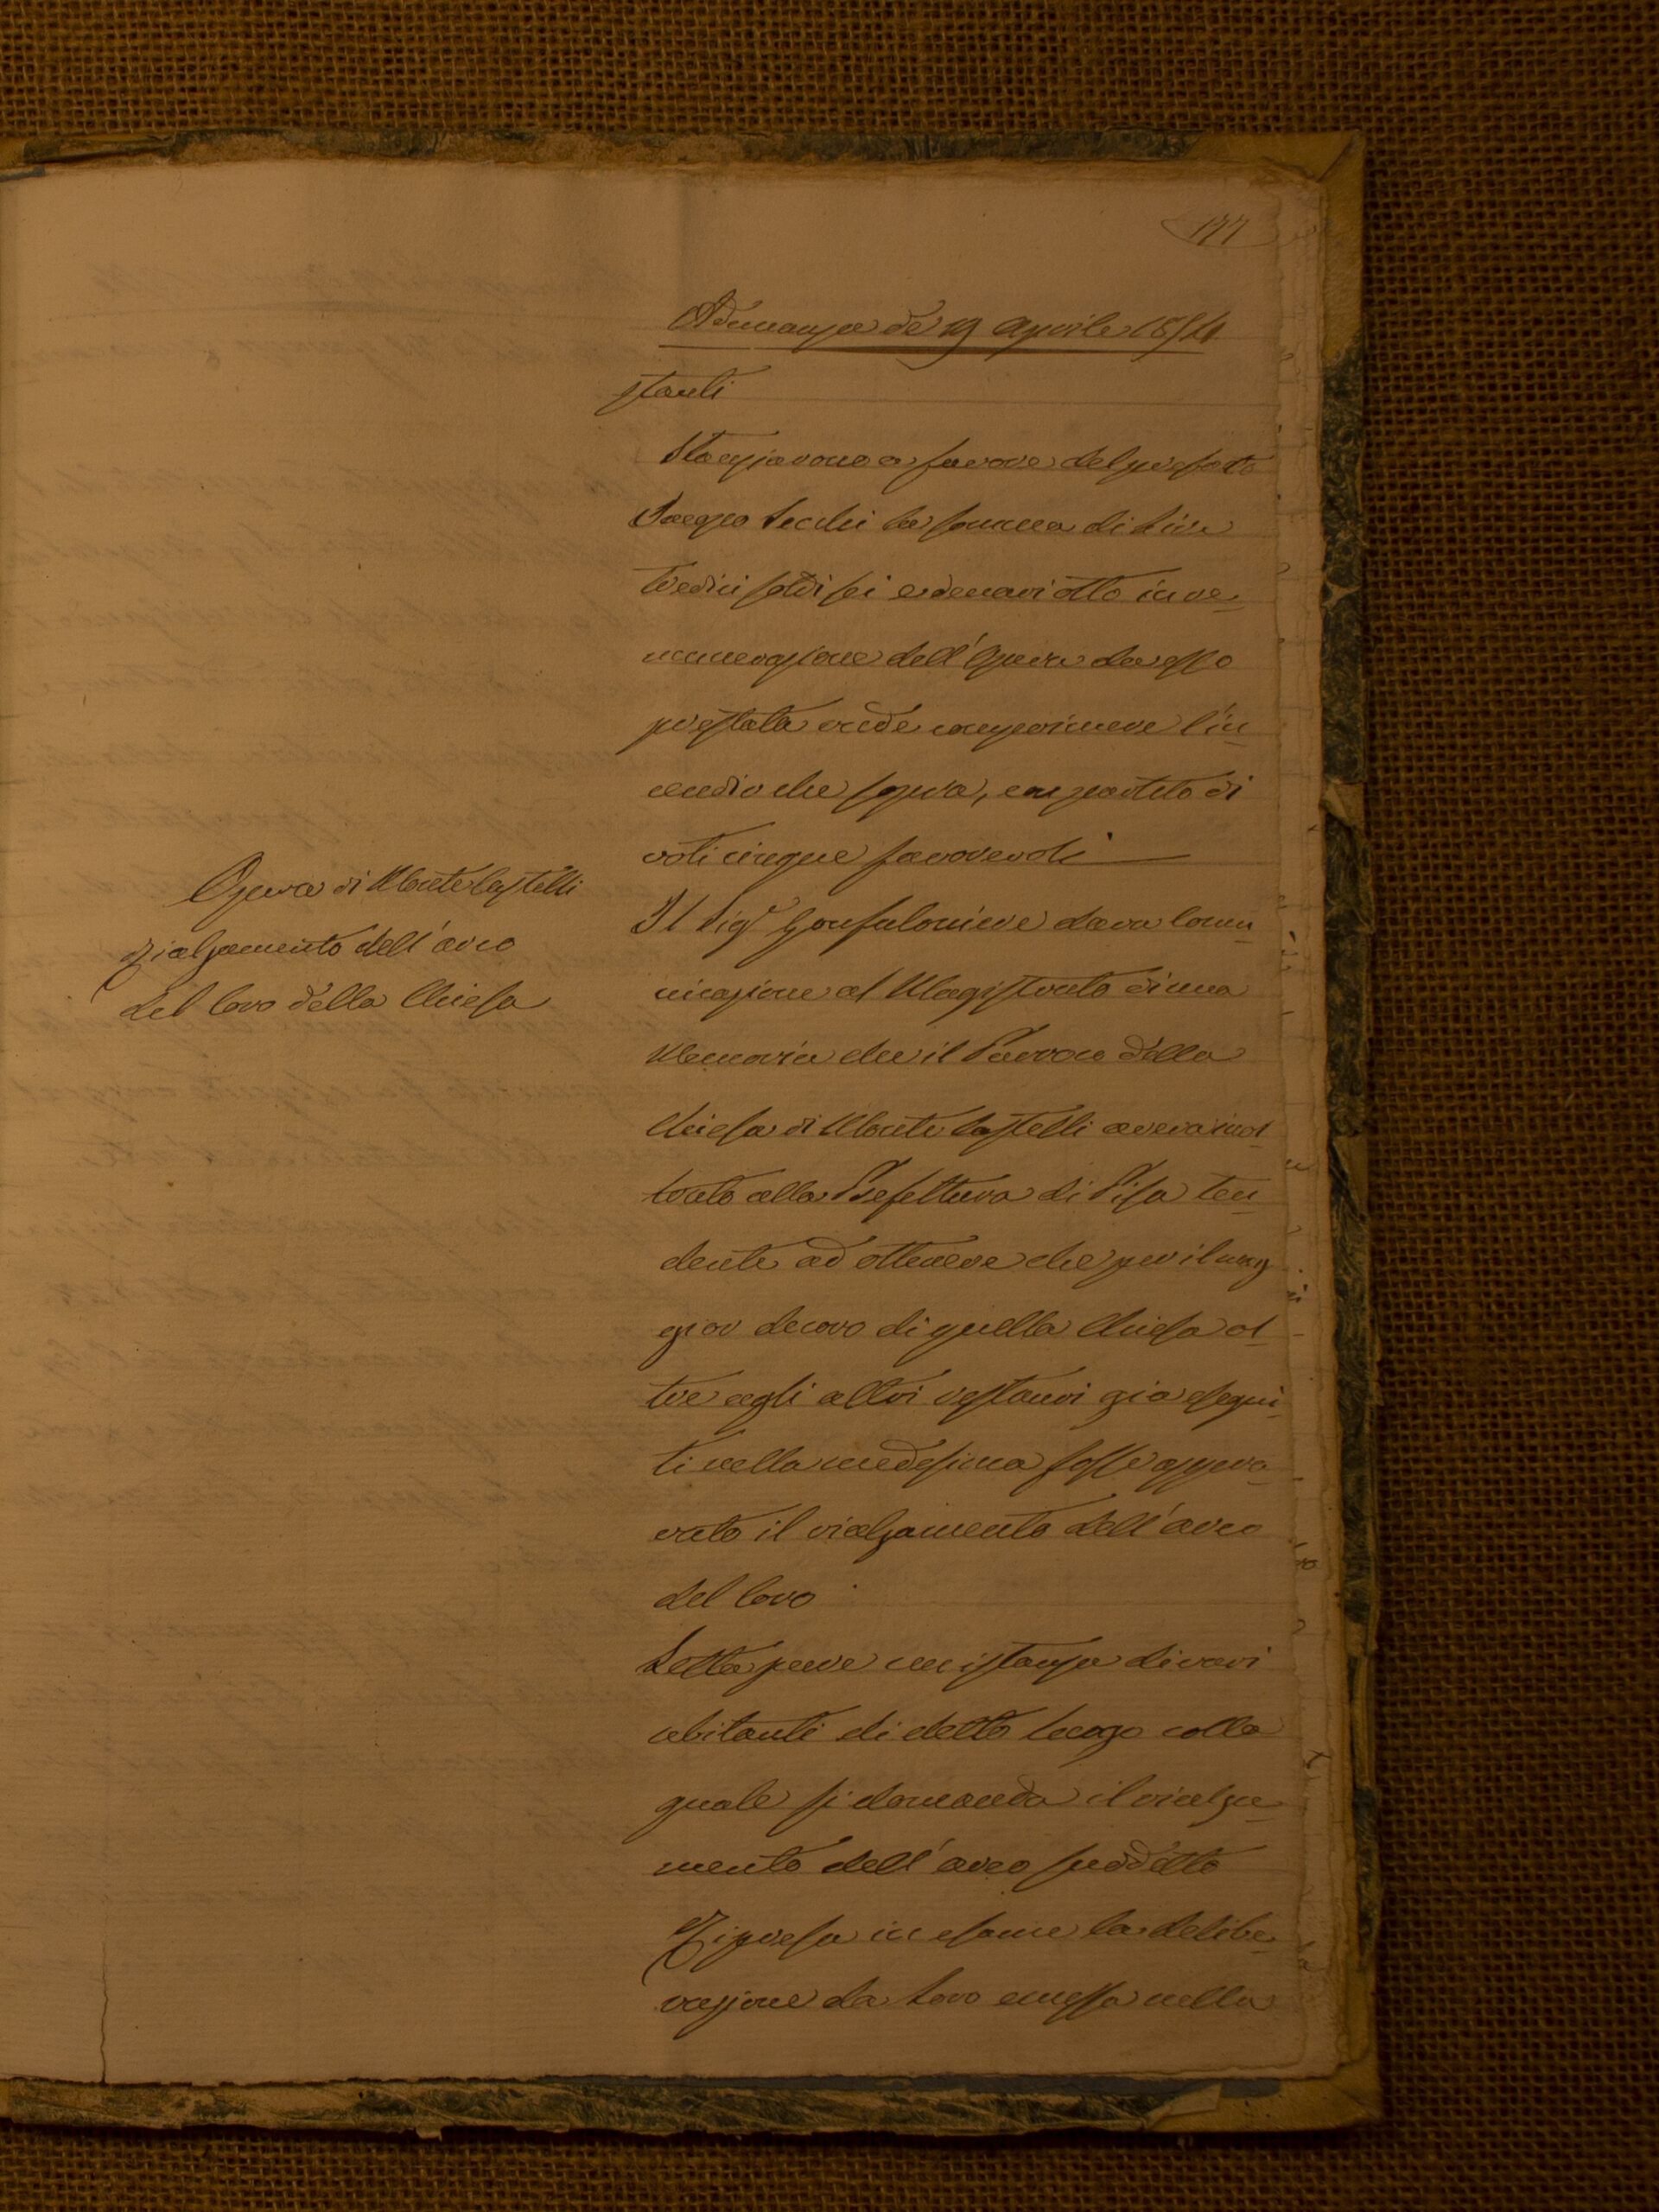 177
Adunanza de 19 Aprile 1854
stanti
Stanziarono a favore del prefato
Sacchi la somma di Lire
tredici soldi sei e denari otto in re-
munerazione dell'Opera da esso
prestata onde comprimere l'in-
cendio che sopra, con partito di
voti cinque favorevoli
Opera di Monte Castelli
Rialzamento dell'arco
del Coro della Chiesa
Il Sigr Gonfaloniere dava comu-
nicazione al Magistrato di una
Memoria che il Parroco della
Chiesa di Monte Castelli aveva inol
trato alla Prefettura di Pisa ten-
dente ad ottenere che per il mag
gior decoro di quella Chiesa ol
tre agli altri restauri già esegui-
ti nella medesima fosse appro-
vato il rialzamento dell'arco
del Coro
Letta pure un istanza di vari
abitanti di detto luogo colla
quale si domanda il rialza-
mento dell'arco suddetto
Ripresa in esame la delibe-
razione da Loro emessa nella